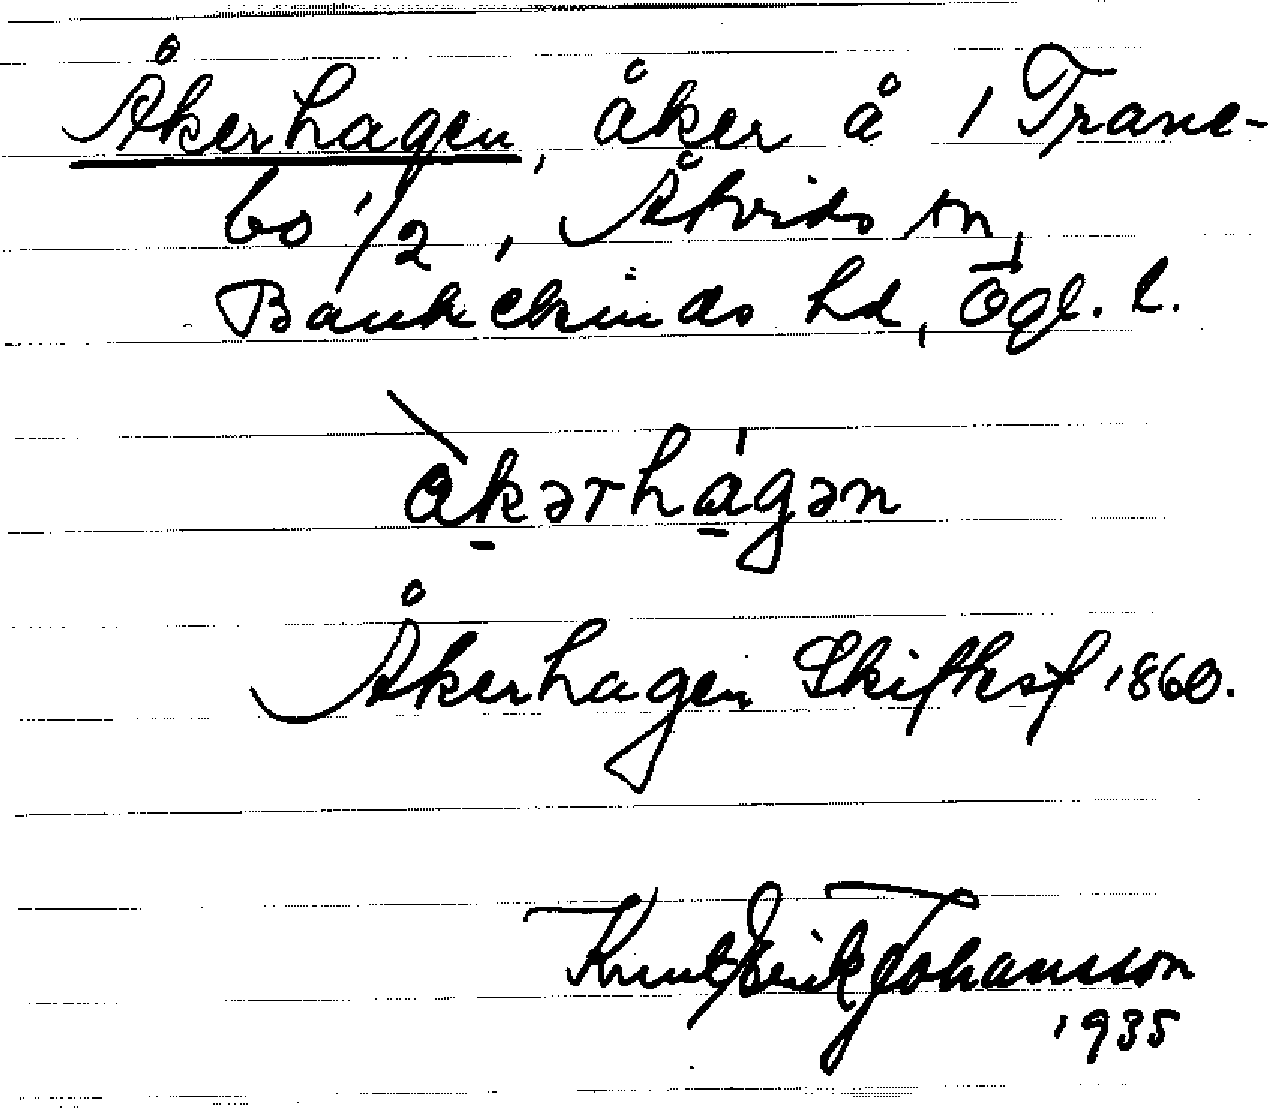 Åkerhagen, åker å 1 Trane-
bo 1/2, Åtvids sn,
Bankekinds hd, Ögl. l.
åkərhágən
Åkerhagen Skiftesf 1860.
Knut Erik Johansson
1935